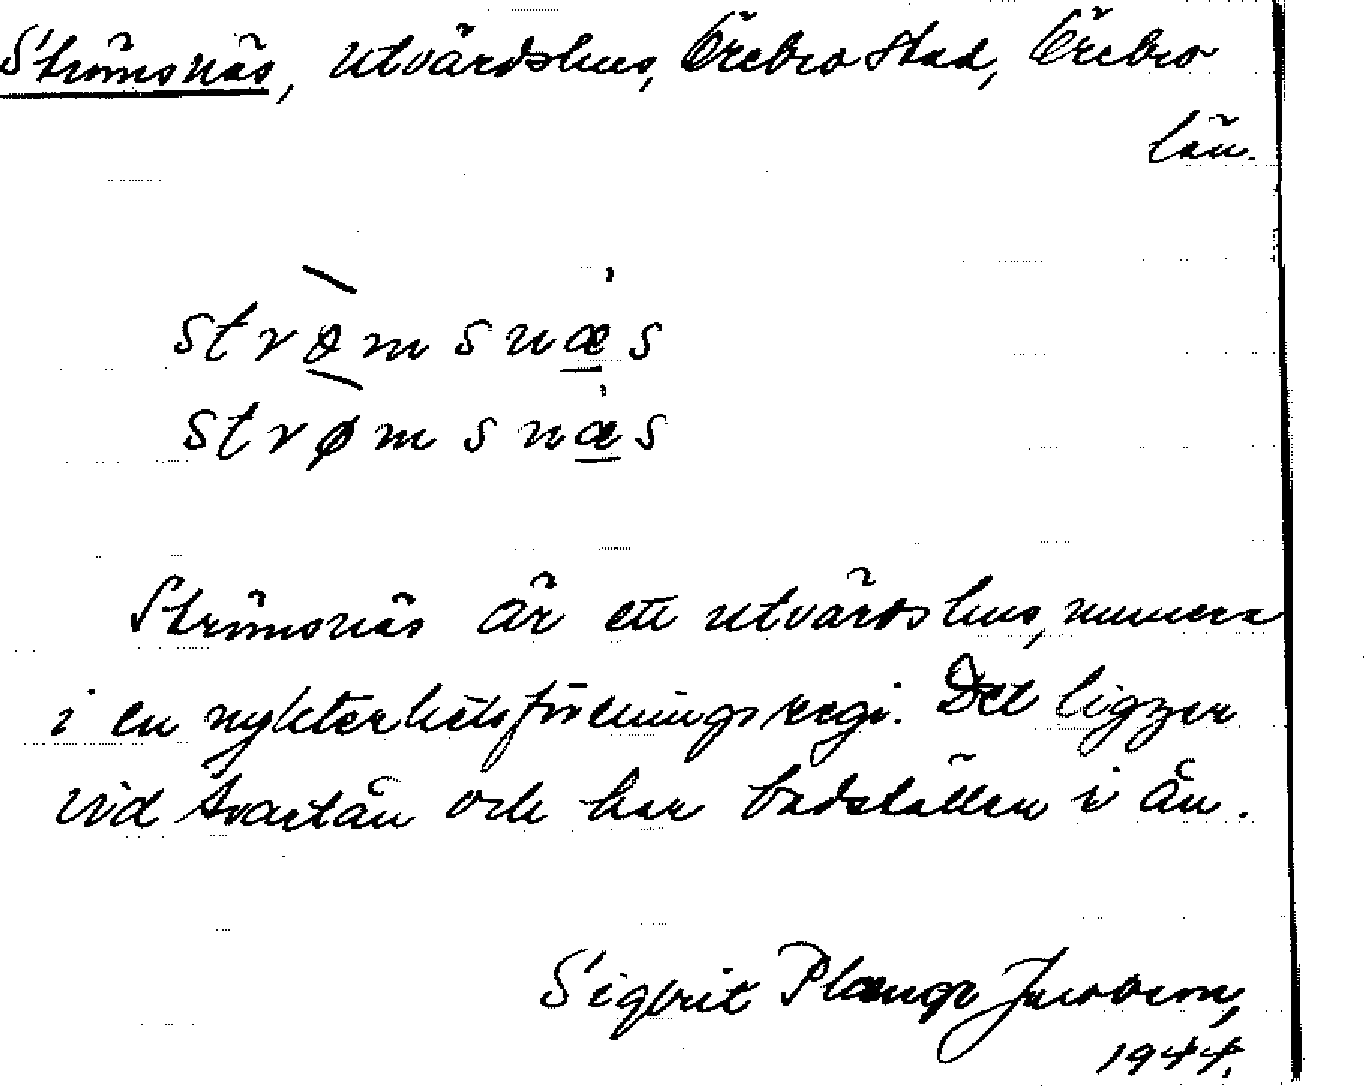 Strömsnäs, utvärdshus, Örebro stad, Örebro
län.
strömsnæs
strømsnæs
Strömsnäs är ett utvärdshus, numera
i en nykterhetsföreningsregi. Det ligger
vid Svartån och har badställen i ån.
Sigbrit Plænge Jacobson,
1944.